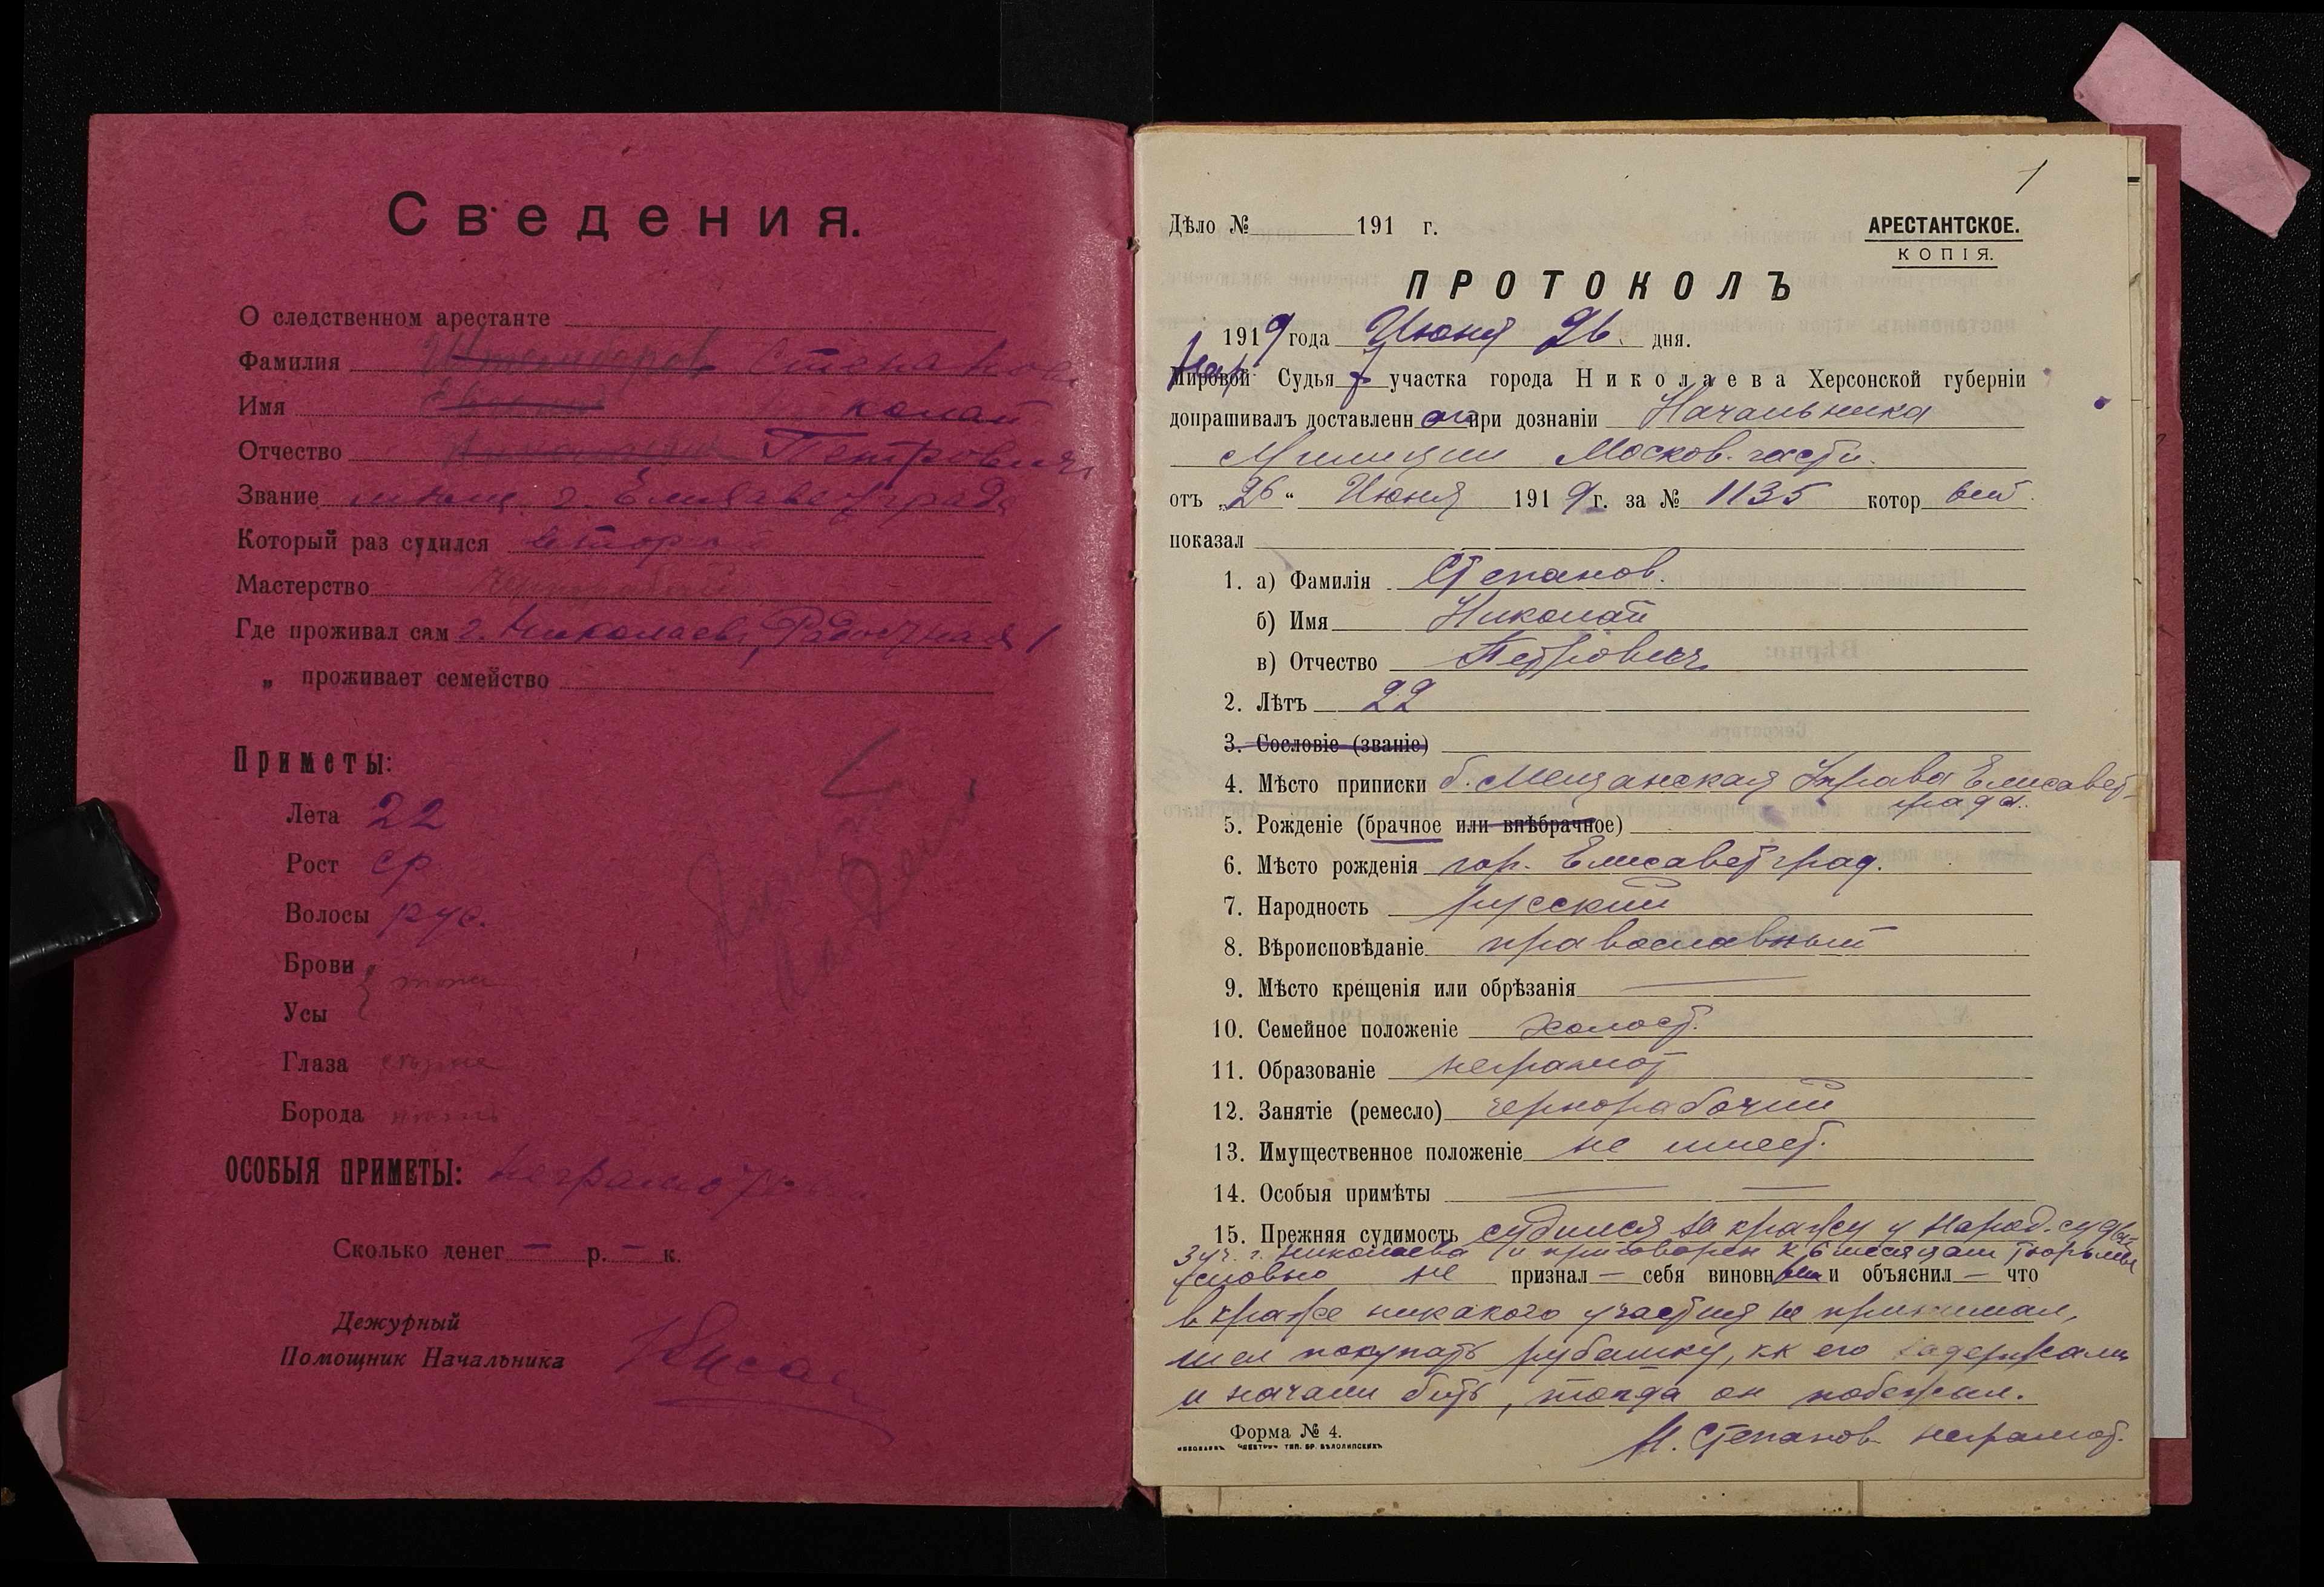 Сведения.
О следственном арестанте
Фамилия Степанов
Имя Николай
Отчество Петрович
Звание мещ. г. Елисаветграда
Который раз судился вторый
Мастерство чернорабочий
Где проживал сам г. Николаев, 1
„ проживает семейство
Приметы:
Лета 22
Рост ср
Волосы рус.
Брови
Усы
Глаза
Борода
ОСОБЫЯ ПРИМЕТЫ: неграмотный
Сколько денег — р. — к.
Дежурный
Помощник Начальника
1
Дѣло № 191 г.
АРЕСТАНТСКОЕ.
КОПІЯ.
ПРОТОКОЛЪ
1919 года Июня 26 дня.
Нар. Судья 7 участка города Николаева Херсонской губерніи
допрашивалъ доставленн при дознаніи Начальника
Милиции Москов. части.
отъ „26“ Июня 1919 г. за № 1135 котор ый
показал
1. а) Фамилія Степанов.
б) Имя Николай
в) Отчество Петрович
2. Лѣтъ 22
3. Сословіе (званіе)
4. Мѣсто приписки б. Мещанская Управа Елисавет-
града.
5. Рожденіе (брачное или внѣбрачное)
6. Мѣсто рожденія гор. Елисаветград.
7. Народность русский
8. Вѣроисповѣданіе православный
9. Мѣсто крещенія или обрѣзанія —
10. Семейное положеніе холост.
11. Образованіе неграмот
12. Занятіе (ремесло) чернорабочий
13. Имущественное положеніе не имеет.
14. Особыя примѣты — —
15. Прежняя судимость судился за кражу у Народ. судьи
3 уч. г. Николаева и приговорен к 6 месяцам тюрьмы
условно не признал — себя виновным и объяснил — что
в краже никакого участия не принимал,
шел покупать рубашку, кк его задержали
и начали бить, тогда он побежал.
Форма № 4.
Н. Степанов неграмот.